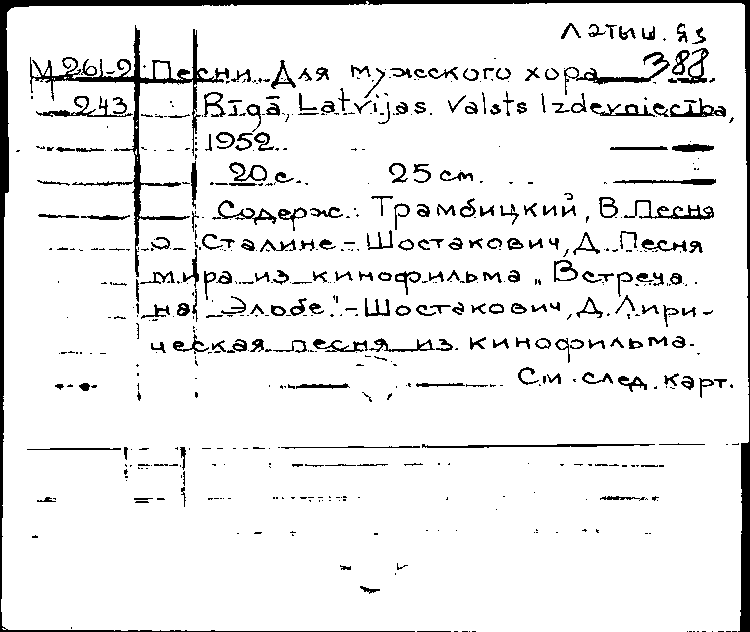 Латыш. яз
М 261-2 Песни для мужского хора 388
243 Rīgā, Latvijas Valsts Izdevniecība,
1952
20 с. 25 см.
Содерж.: Трамбицкий, В. Песня
о Сталине - Шостакович, Д. Песня
мира из кинофильма „Встреча
на Эльбе." - Шостакович, Д. Лири-
ческая песня из кинофильма.
См. след. карт.